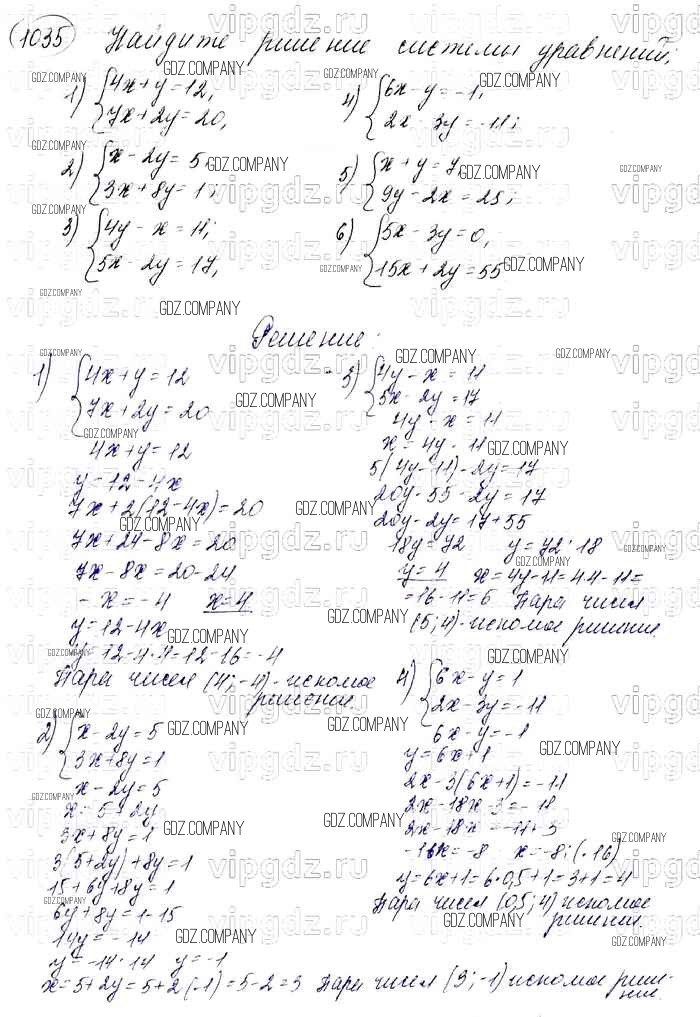 1035 Найдите решение системы уравнений:
1) { 4x + y = 12,
7x + 2y = 20,
2) { x - 2y = 5,
3x + 8y = 1;
3) { 4y - x = 11;
5x - 2y = 17,
4) { 6x - y = -1,
2x - 3y = -11;
5) { x + y = 7,
9y - 2x = 25;
6) { 5x - 3y = 0,
15x + 2y = 55
Решение:
1) { 4x + y = 12
7x + 2y = 20
4x + y = 12
y = 12 - 4x
7x + 2(12 - 4x) = 20
7x + 24 - 8x = 20
7x - 8x = 20 - 24
- x = -4 x = 4
y = 12 - 4x
y = 12 - 4·4 = 12 - 16 = -4
Пара чисел (4; -4) - искомое
решение.
2) { x - 2y = 5
3x + 8y = 1
x - 2y = 5
x = 5 + 2y
3x + 8y = 1
3(5 + 2y) + 8y = 1
15 + 6y + 8y = 1
6y + 8y = 1 - 15
14y = -14
y = -14 : 14 y = -1
x = 5 + 2y = 5 + 2(-1) = 5 - 2 = 3 Пара чисел (3; -1) искомое реше-
ние.
3) { 4y - x = 11
5x - 2y = 17
4y - x = 11
x = 4y - 11
5(4y - 11) - 2y = 17
20y - 55 - 2y = 17
20y - 2y = 17 + 55
18y = 72 y = 72 : 18
y = 4 x = 4y - 11 = 4·4 - 11 =
= 16 - 11 = 6 Пара чисел
(5; 4) - искомое решение.
4) { 6x - y = 1
2x - 3y = -11
6x - y = -1
y = 6x + 1
2x - 3(6x + 1) = -11
2x - 18x - 3 = -11
2x - 18x = -11 + 3
-16x = -8 x = -8 : (-16)
y = 6x + 1 = 6·0,5 + 1 = 3 + 1 = 4
Пара чисел (0,5; 4) искомое
решение.
vipgdz.ru
GDZ.COMPANY